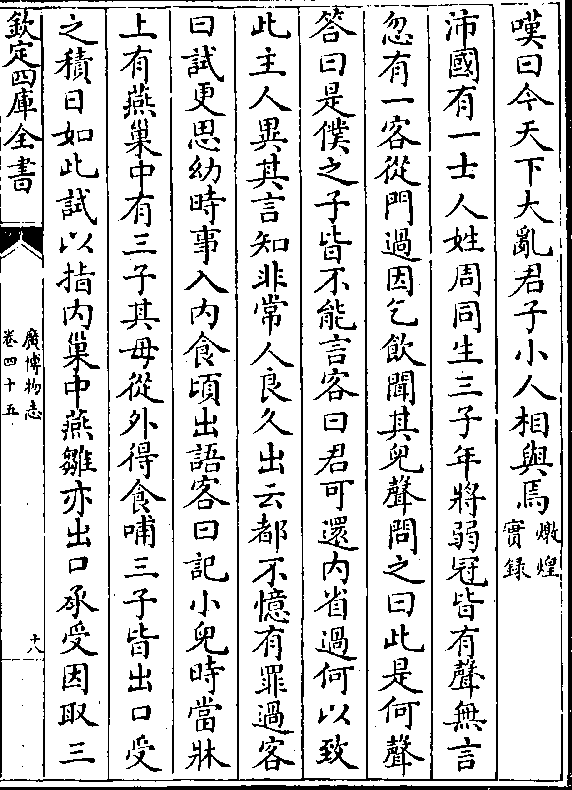 嘆曰今天下大亂君子小人相與焉燉煌實録
沛國有一士人姓周同生三子年將弱冠皆有聲無言
忽有一客從門過因乞飲聞其兒聲問之曰此是何聲
答曰是僕之子皆不能言客曰君可還内省過何以致
此主人異其言知非常人良久出云都不憶有罪過客
曰試更思幼時事入内食頃出語客曰記小兒時當牀
上有燕巢中有三子其母從外得食哺三子皆出口受
之積日如此試以指内巢中燕雛亦出口承受因取三
欽定四庫全書
廣博物志
卷四十五
十八